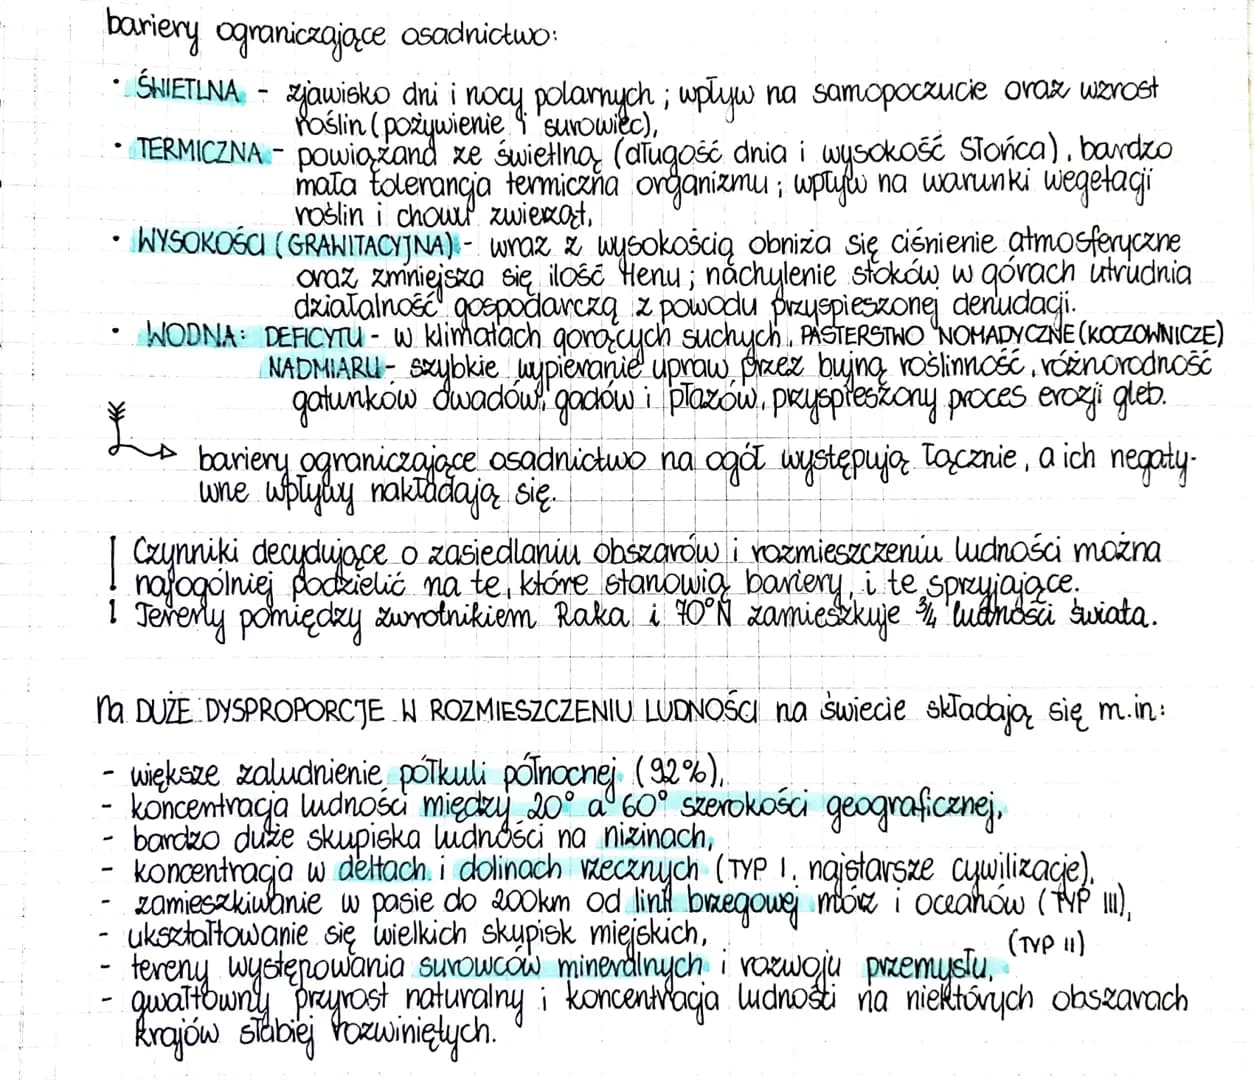 bariery ograniczające osadnictwo:
• ŚWIETLNA - zjawisko dni i nocy polarnych; wpływ na samopoczucie oraz wzrost
roślin (pożywienie i surowiec),
• TERMICZNA - powiązana ze świetlną (długość dnia i wysokość Słońca), bardzo
mała tolerancja termiczna organizmu; wpływ na warunki wegetacji
roślin i chowu zwierząt,
• WYSOKOŚCI (GRAWITACYJNA) - wraz z wysokością obniża się ciśnienie atmosferyczne
oraz zmniejsza się ilość tlenu; nachylenie stoków w górach utrudnia
działalność gospodarczą z powodu przyspieszonej denudacji.
• WODNA: DEFICYTU - w klimatach gorących suchych, PASTERSTWO NOMADYCZNE (KOCZOWNICZE)
NADMIARU - szybkie wypieranie upraw przez bujną roślinność, różnorodność
gatunków owadów, gadów i płazów, przyspieszony proces erozji gleb.
bariery ograniczające osadnictwo na ogół występują łącznie, a ich negaty-
wne wpływy nakładają się.
! Czynniki decydujące o zasiedlaniu obszarów i rozmieszczeniu ludności można
najogólniej podzielić na te, które stanowią bariery, i te sprzyjające.
! Tereny pomiędzy zwrotnikiem Raka i 70°N zamieszkuje 3/4 ludności świata.
na DUŻE DYSPROPORCJE W ROZMIESZCZENIU LUDNOŚCI na świecie składają się m.in:
- większe zaludnienie półkuli północnej (92%),
- koncentracja ludności między 20° a 60° szerokości geograficznej,
- bardzo duże skupiska ludności na nizinach,
- koncentracja w deltach i dolinach rzecznych (TYP I, najstarsze cywilizacje),
- zamieszkiwanie w pasie do 200km od linii brzegowej mórz i oceanów (TYP III),
- ukształtowanie się wielkich skupisk miejskich,
(TYP II)
- tereny występowania surowców mineralnych i rozwoju przemysłu,
- gwałtowny przyrost naturalny i koncentracja ludności na niektórych obszarach
krajów słabiej rozwiniętych.